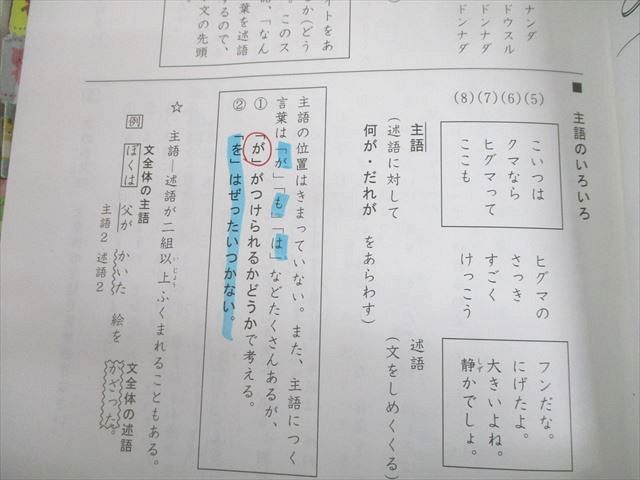 ナンダ
ドウスル
ドンナダ
ドンナダ
イトをあ
か(どう
。このス
、「なん
葉を述語
るので、
文の先頭
■ 主語のいろいろ
(5) こいつは ヒグマの フンだな。
(6) クマなら さっき にげたよ。
(7) ヒグマって すごく 大きいよね。
(8) ここも けっこう 静かでしょ。
しず
主語 述語
(述語に対して (文をしめくくる)
何が・だれが をあらわす)
主語の位置はきまっていない。また、主語につく
言葉は「が」「も」「は」などたくさんあるが、
① 「が」がつけられるかどうかで考える。
② 「を」はぜったいつかない。
☆ 主語―述語が二組以上ふくまれることもある。
いじょう
例 ぼくは 父が かいた 絵を かざった。
文全体の主語 主語2 述語2 文全体の述語